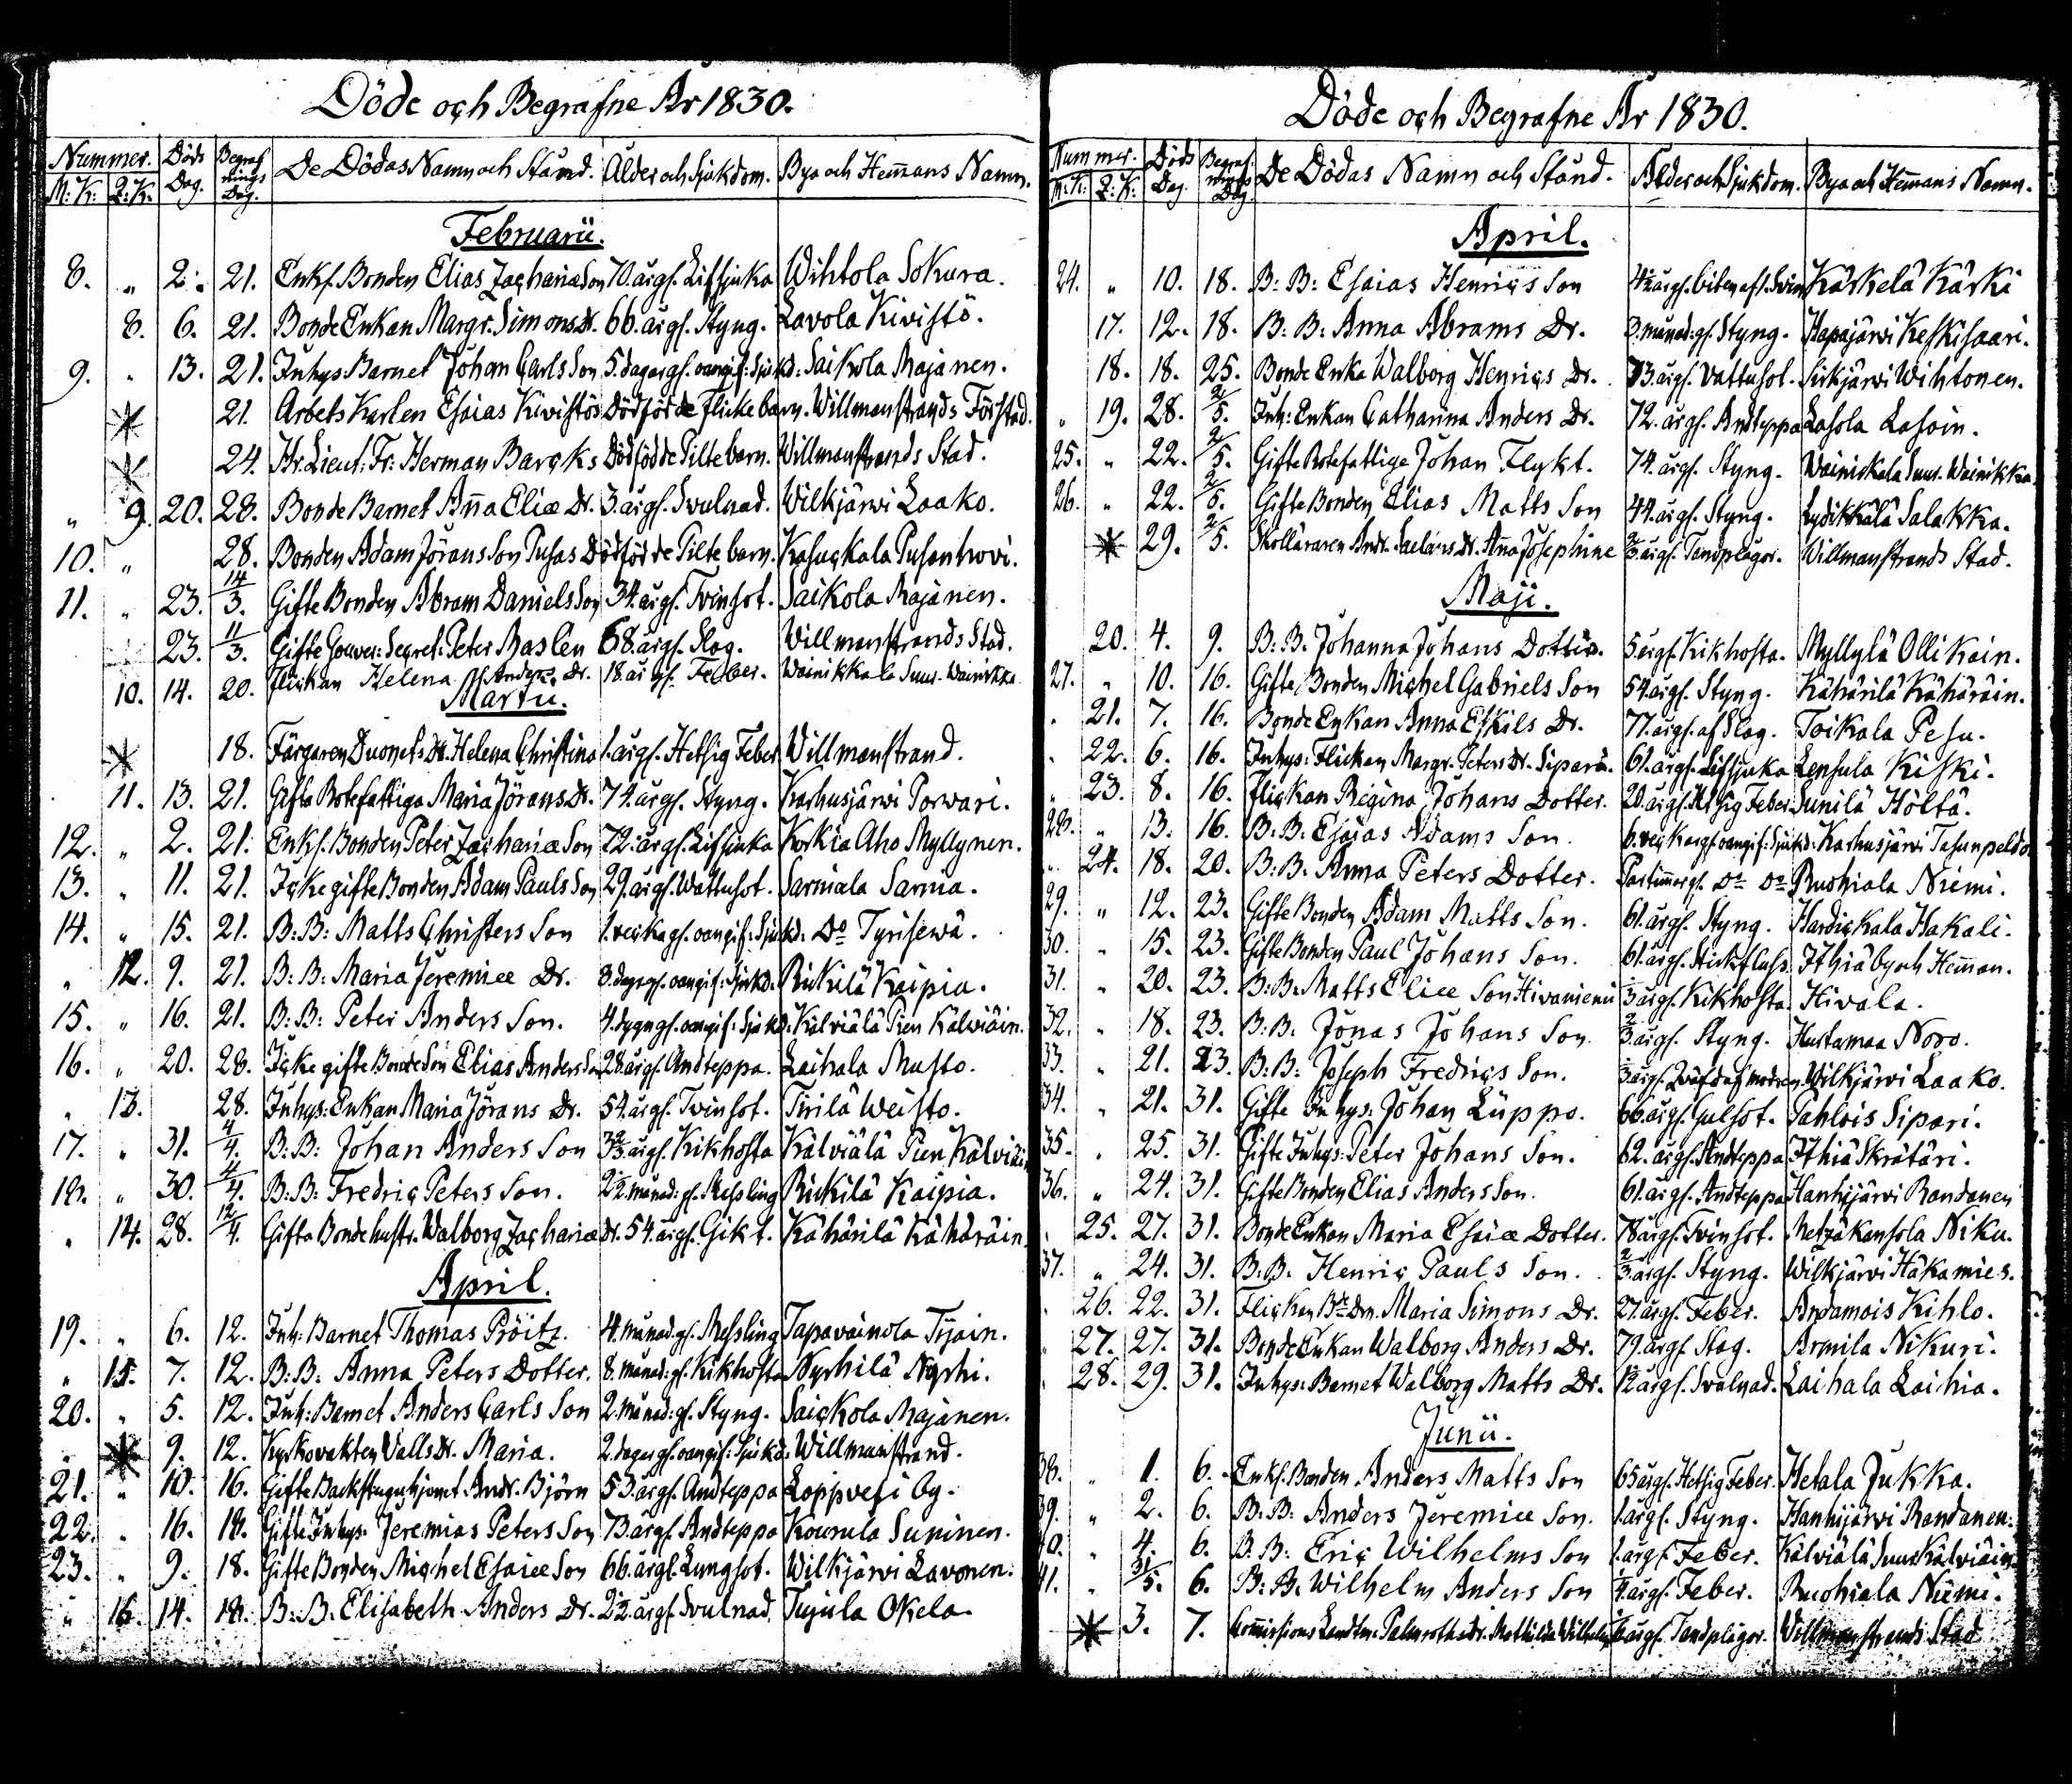 Döde och Begrafne År 1830.
Nummer. Döds Dag. Begrafnings Dag. De Dödas Namn och Stånd. Ålder och Sjukdom. Bya och Hem̄ans Namn.
M: K: Q: K:
Februarii.
8. " 2. 21. Enkl. Bonden Elias Zachariæ Son 70. årgl. Lifsjuka Wihtola Sokura.
8. 6. 21. Bonde Enkan Margr. Simons Dr. 66. årgl. Styng. Lavola Kivistö.
9. " 13. 21. Inhys Barnet Johan Carls Son 5. dagargl. oangif: Sjukd: Saikola Majanen.
* 21. Arbets Karlen Esaias Kivistös Dödfödde flicke barn. Willmanstrands Förstad.
* 24. Hr. Lieut: Fr: Herman Barcks Dödfödde Pilte barn. Willmanstrands Stad.
" 9. 20. 28. Bonde Barnet An̄a Eliæ Dr. 3. årgl. Svulnad. Wilkjärwi Laako.
10. " 28. Bonden Adam Jörans Son Pusas Dödfödde Pilte barn. Kasuckala Pusanhovi.
11. " 23. 14/3. Gifte Bonden Abram Daniels Son 34. årgl. Tvinsot. Saikola Majanen.
23. 11/3. Gifte Gouver: Secret: Peter Maslen 68. årgl. Slag. Willmanstrands Stad.
10. 14. 20. flickan Helena Anders Dr. 18. årgl. Feber. Wainikkala Suur. Wainikka
Martii.
* 18. Färgaren Duonets Dr. Helena Christina 1. årgl. Hetsig Feber Willmanstrand.
11. 13. 21. Gifta Rotefattiga Maria Jörans Dr. 74. årgl. Styng. Karhusjärwi Porvari.
12. " 2. 21. Enkl. Bonden Peter Zachariæ Son 72. årgl. Lifsjuka Korkia Aho Myllynen.
13. " 11. 21. Icke gifte Bonden Adam Pauls Son 29. årgl. Wattusot. Sarviala Sarvia.
14. " 15. 21. B: B: Matts Christers Son 1. vecka gl. oangif: Sjukd: Do Tyrisewä.
" 12. 9. 21. B: B: Maria Jeremiæ Dr. 8. dagr gl. oangif: Sjukd: Rickilä Kaipia.
15. " 16. 21. B: B: Peter Anders Son. 4. dygn gl. oangif: Sjukd: Kälviälä Pien Kälviäin.
16. " 20. 28. Icke gifte Bonde Son Elias Anders Son 28. årgl. Andteppa. Laihala Musto.
" 13. 28. Inhys: Enkan Maria Jörans Dr. 54. årgl. Tvinsot. Tirilä Weisto.
17. " 31. 4/4. B: B: Johan Anders Son 3 2/3. årgl. Kikhosta Kälviälä Pien Kälviäin
18. " 30. 4/4. B: B: Fredric Peters Son. 2 1/2. månad: gl. Messling Rickilä Kaipia.
" 14. 28. 12/4. Gifta Bonde hustr. Walborg Zachariæ Dr. 54. årgl. Gikt. Kähärilä Kähäräin.
April.
19. " 6. 12. Inh: Barnet Thomas Pröitz. 4. månad. gl. Messling Tapavainola Tijain.
" 15. 7. 12. B: B: Anna Peters Dotter. 8. månad: gl. Kikhosta Nyrhilä Nyrhi.
20. " 5. 12. Inh: Barnet Anders Carls Son 2. månad: gl. Styng. Saickola Majanen.
" * 9. 12. Kyrkovakten Valls Dr. Maria. 2. dagar gl. oangif: Sjukd: Willmanstrand.
21. " 10. 16. Gifte Backstuguhjonet Andr. Björn 53. årgl. Andteppa Loppvesi by.
22. " 16. 18. Gifte Inhys: Jeremias Peters Son 73. årgl. Andteppa Kourula Suninen.
23. " 9. 18. Gifte Bonden Michel Esaiæ Son 66. årgl. Lungsot. Wilkjärwi Lavonen.
" 16. 14. 18. B: B: Elisabeth Anders Dr. 2 1/2. årgl. Svulnad. Tujula Okela.
Döde och Begrafne År 1830.
Nummer. Döds Dag. Begrafnings Dag. De Dödas Namn och Stånd. Ålder och Sjukdom. Bya och Hem̄ans Namn.
M: K: Q: K:
April.
24. " 10. 18. B: B: Esaias Henrics Son 4 1/2 årgl. biten af l. Svin Kärkelä Kärki
17. 12. 18. B: B: Anna Abrams Dr. 3. månad: gl. Styng. Hapajärwi Keskisaari.
18. 18. 25. Bonde Enka Walborg Henrics Dr. 73. årgl. Vattusot. Sirkjärwi Wihtonen.
" 19. 28. 2/5. Inh: Enkan Catharina Anders Dr. 72. årgl. Andteppa Lasola Lasoin.
25. " 22. 2/5. Gifte Rotefattige Johan Flykt. 74. årgl. Styng. Wainickala Suur. Wainikka.
26. " 22. 2/5. Gifte Bonden Elias Matts Son 44. årgl. Styng. Lydikkälä Salakka.
* 29. 2/5. Skolläraren Andr. Dr. An̄a Josephine årgl. Tandplågor. Willmanstrands Stad.
Maji.
20. 4. 9. B: B: Johanna Johans Dotter. 5 årgl. Kikhosta. Myllylä Ollikain.
27. " 10. 16. Gifte Bonden Michel Gabriels Son 54. årgl. Styng. Kähärilä Kähäräin.
" 21. 7. 16. Bonde Enkan Anna Eskils Dr. 77. årgl. af Slag. Toikala Pesu.
" 22. 6. 16. Inhys: Flickan Margr. Peters Dr. Sipara. 61. årgl. Lifsjuka Lensula Kiski.
" 23. 8. 16. Flickan Regina Johans Dotter. 20. årgl. Hetsig Feber Sunilä Höltä.
28. " 13. 16. B: B: Esaias Adams Son. 6. veck argl. oangif: Sjukd: Karhusjärwi Tasunpeldo
" 24. 18. 20. B: B: Anna Peters Dotter. Do Do Ruohiala Niemi.
29. " 12. 23. Gifte Bonden Adam Matts Son. 61. årgl. Styng. Hardickala Hakali.
30. " 15. 23. Gifte Bonden Paul Johans Son. 61. årgl. Stickfluss Ithiä by och Hem̄an.
31. " 20. 23. B: B: Matts Eliæ Son Hivanienii årgl. Kikhosta Hivala.
32. " 18. 23. B: B: Jonas Johans Son. 2/3. årgl. Styng. Hurtamaa Noro.
33. " 21. 23. B: B: Joseph Fredrics Son. årgl. Qväfd af modren. Wilkjärwi Laako.
34. " 21. 31. Gifte Inhys: Johan Lüppo. 66. årgl. Gulsot. Pahlois Sipari.
35. " 25. 31. Gifte Inhys: Peter Johans Son. 62. årgl. Andteppa Ithiä Skrätäri.
36. " 24. 31. Gifte Bonden Elias Anders Son. 61. årgl. Andteppa Hanhijärwi Randanen
25. 27. 31. Bonde Enkan Maria Esaiæ Dotter. 78 årgl. Tvinsot. Metzäkansola Niku.
37. " 24. 31. B: B: Henric Pauls Son. 2/3. årgl. Styng. Wilkjärwi Häkamies.
26. 22. 31. Flickan Maria Simons Dr. 21. årgl. Feber. Ardamois Kihlo.
27. 27. 31. Bonde Enkan Walborg Anders Dr. 79. årgl. Slag. Armila Nikuri.
28. 29. 31. Inhys: Barnet Walborg Matts Dr. 1 1/2 årgl. Svulnad. Laihala Laihia.
Junii.
38. " 1. 6. Enkl. Bonden Anders Matts Son 65 årgl. Hetsig Feber. Hetala Jukka.
39. " 2. 6. B: B: Anders Jeremiæ Son. 1. årgl. Styng. Hanhijärwi Randanen.
40. " 4. 6. B: B: Eric Wilhelms Son 1. årgl. Feber. Kälviälä Suur Kälviäin.
41. " 31/5. 6. B: B: Wilhelm Anders Son årgl. Feber. Ruohiala Niemi.
* 3. 7. Kom̄issions Landtm: Palmroths dr. Mathilda Wilhelm: årgl. Tandplågor. Willmanstrands Stad